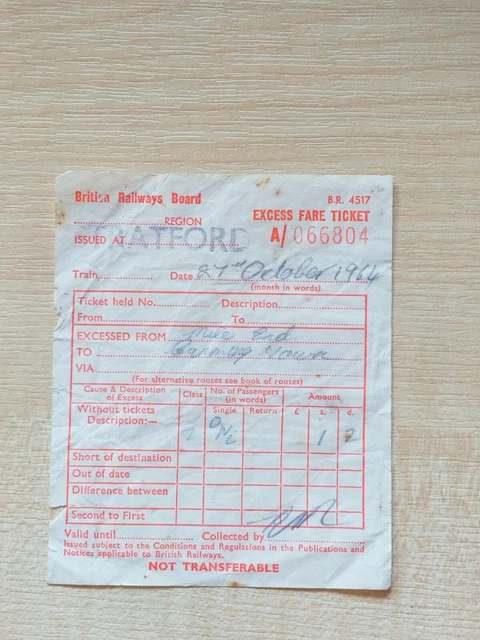 British Railways Board
B.R. 4517
REGION
EXCESS FARE TICKET
ISSUED AT WATFORD
A/ 066804
Train
Date October 1964
(month in words)
Ticket held No. Description
From To
EXCESSED FROM Mile End
TO Canning Town
VIA
(For alternative routes see book of routes)
Cause & Description of Excess Class No. of Passengers (in words) Amount
Single Return £ s. d.
Without tickets
Description:— 2 ONE 1 2
Short of destination
Out of date
Difference between
Second to First
Valid until Collected by
Issued subject to the Conditions and Regulations in the Publications and
Notices applicable to British Railways.
NOT TRANSFERABLE